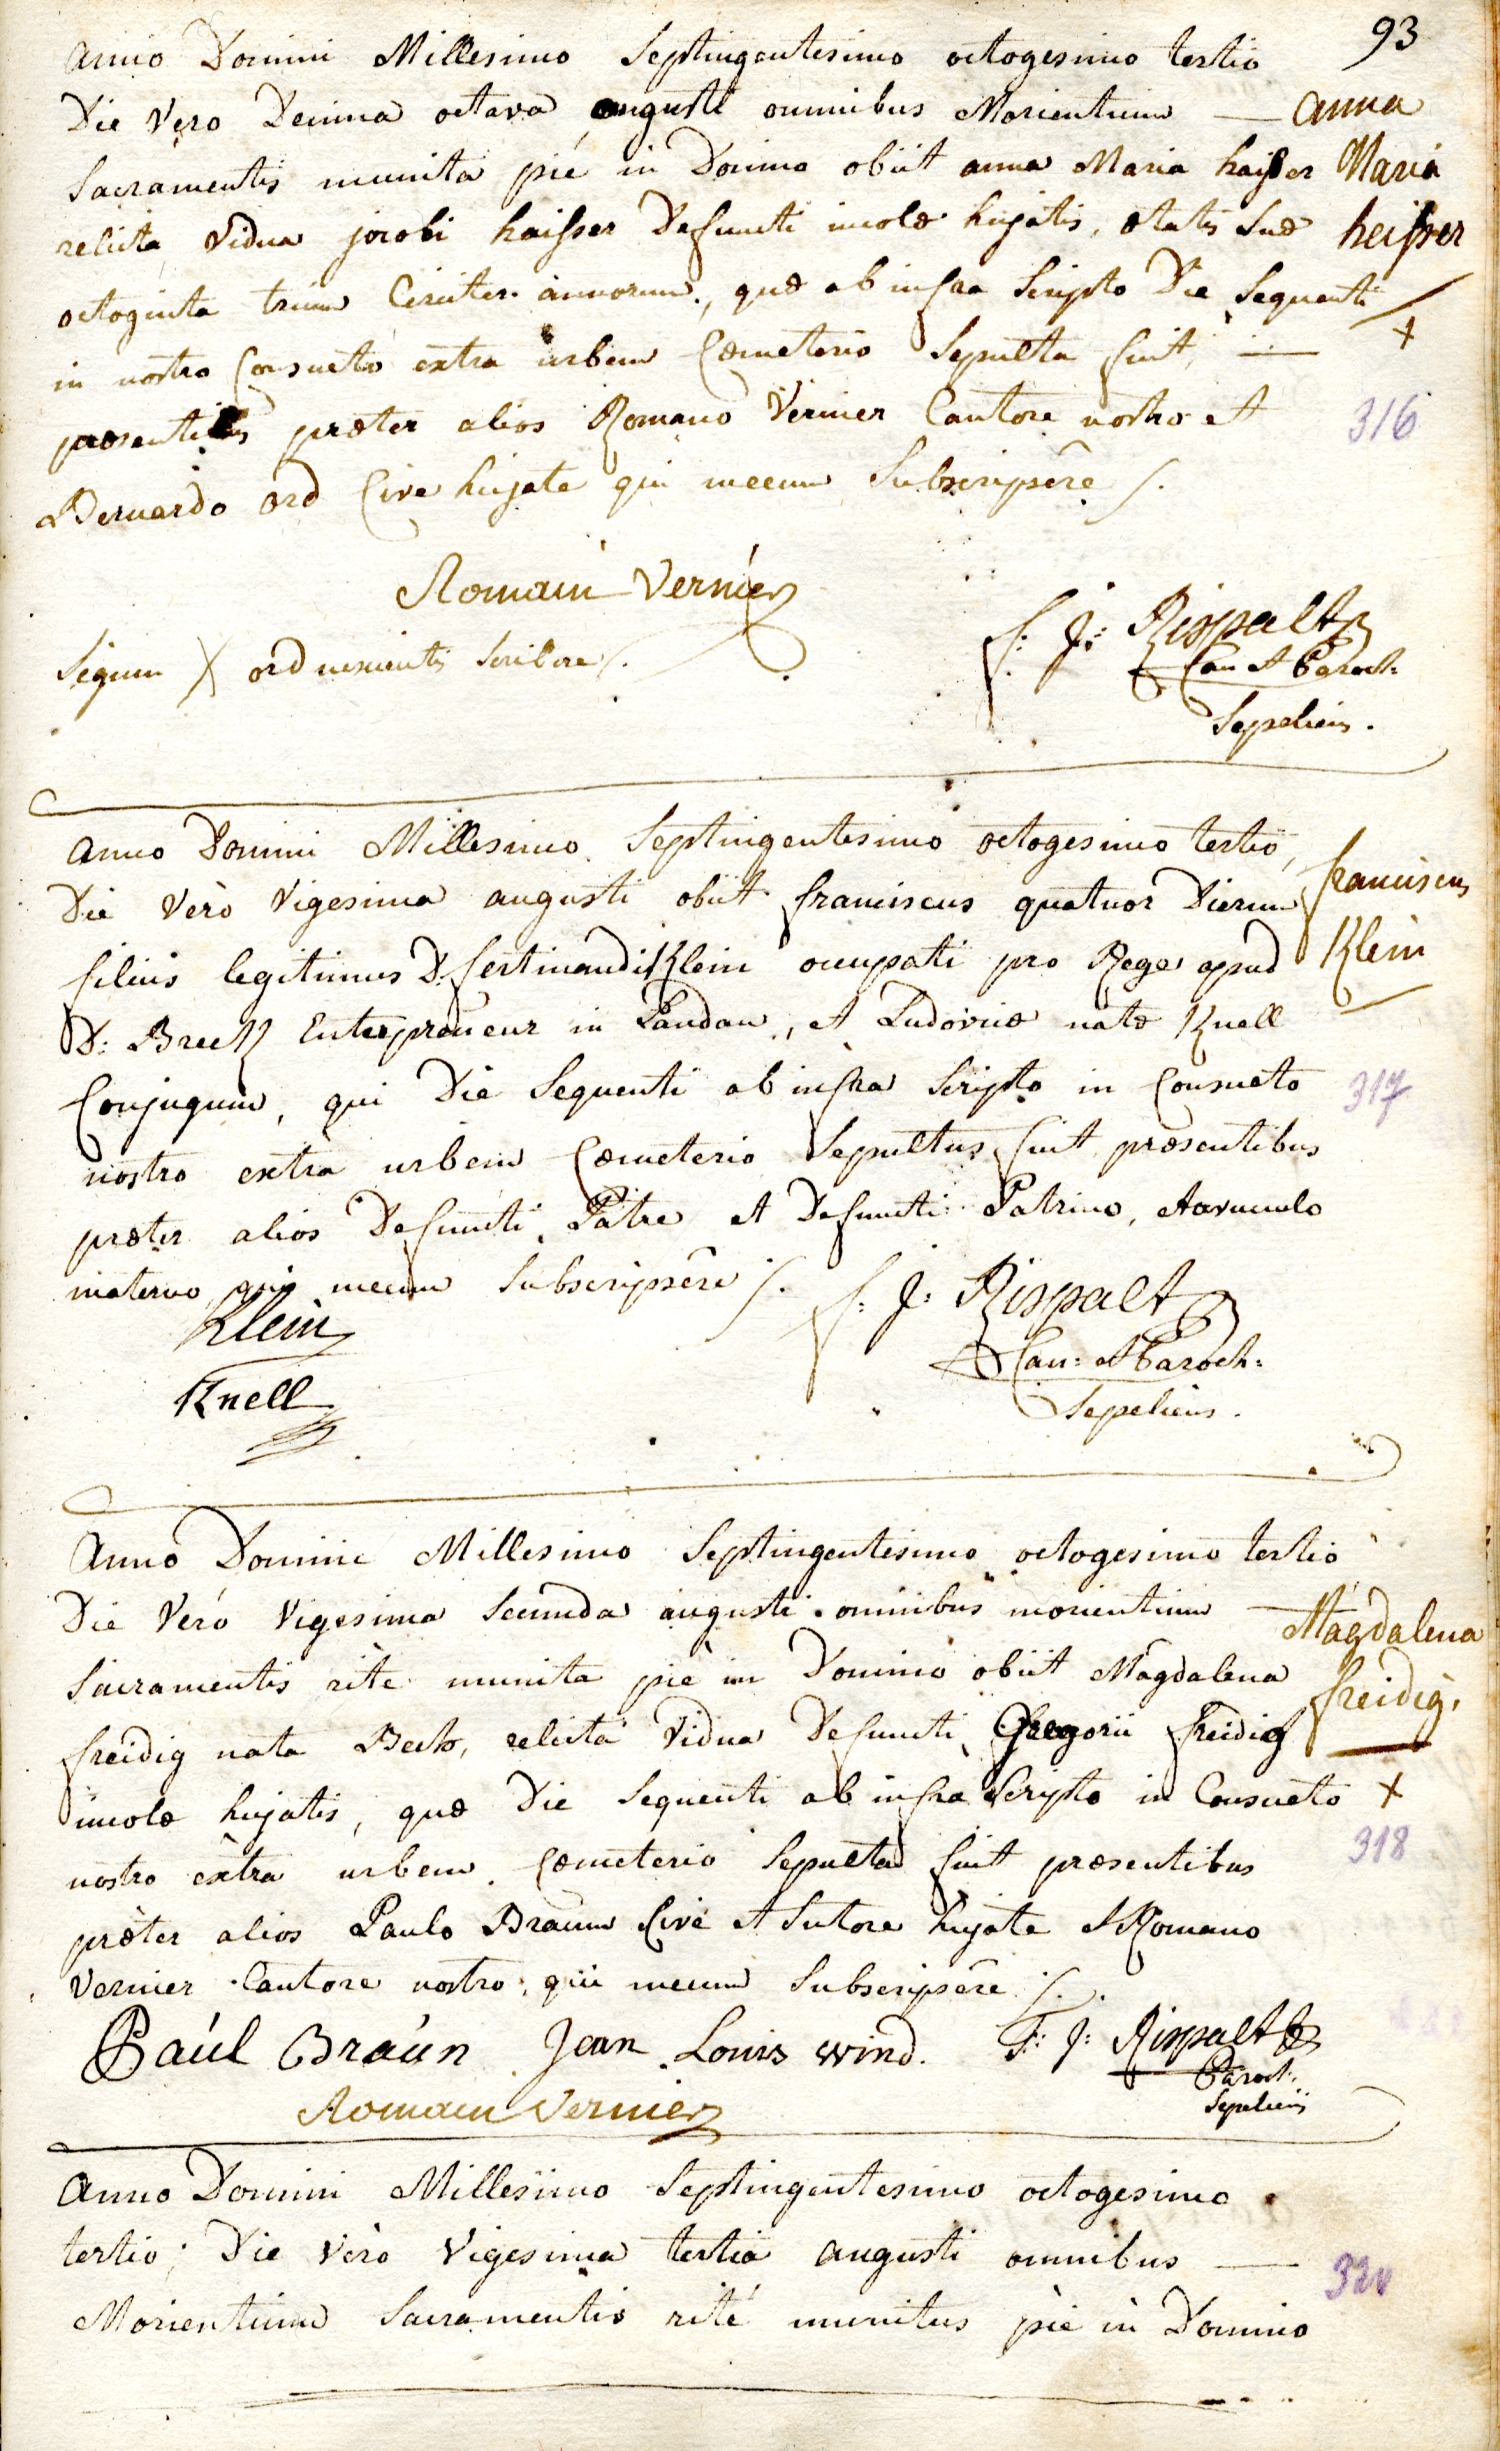 93
Anno Domini Millesimo Septingentesimo octogesimo tertio
Die Vero Decima octava augusti omnibus Morientium — Anna
Sacramentis munita pié in Domino obiit anna Maria haisser Maria
relicta Vidua jacobi haisser Defuncti incolæ hujatis, ætatis suæ heisser
octoginta trium Circiter annorum, quæ ab infra Scripto Die Sequenti
in nostro Consueto extra urbem Cœmeterio Sepulta fuit, — +
præsentibus præter alios Romano Vernier Cantore nostro et 316
Bernardo ord Cive hujate qui mecum Subscripsêre /.
Romain Vernier
F: J: Rispalt
Signum X ord nescientis scribere /.
Can et Paroch:
Sepeliens.
Anno Domini Millesimo Septingentesimo octogesimo tertio,
Die Verò Vigesima augusti obiit franciscus quatuor Dierum franciscus
filius legitimus D. fertinandi Klein occupati pro Rege apud Klein
D: Breck Entrepreneur in Landau, et Ludovicæ natæ Knell
Conjugum, qui Die Sequenti ab infra Scripto in Consueto 317
nostro extra urbem Cœmeterio Sepultus fuit præsentibus
præter alios Defuncti Patre et Defuncti Patrino, Avunculo
materno, qui mecum Subscripsêre /.
F: J: Rispalt
Klein
Can: et Paroch:
Knell
Sepeliens.
Anno Domini Millesimo Septingentesimo octogesimo tertio
Die Veró Vigesima Secunda augusti omnibus morientium — Magdalena
Sacramentis rîte munita piè in Domino obiit Magdalena freidig.
freidig nata Beck, relicta Vidua Defuncti Gregorii freidig
incolæ hujatis, quæ Die Sequenti ab infra Scripto in Consueto +
nostro extra urbem Cœmeterio Sepulta fuit præsentibus 318
præter alios Paulo Braun Cive et Sutore hujate et Romano
Vernier Cantore nostro, qui mecum Subscripsêre /.
Paúl Braún Jean Louis Wind. F: J: Rispalt
Paroch:
Romain Vernier
Sepeliens
Anno Domini Millesimo Septingentesimo octogesimo
tertio; Die Verò Vigesima tertia augusti omnibus —
Morientium Sacramentis rité munitus piè in Domino